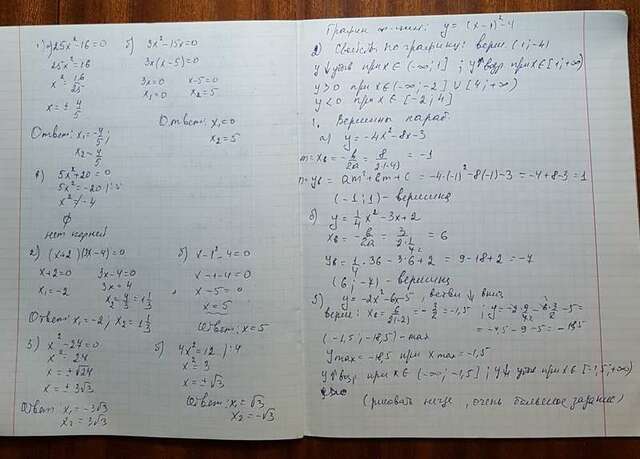 1) a) 25x²-16=0
25x²=16
x²=16/25
x=±4/5
Ответ: x₁=-4/5;
x₂ 4/5
б) 3x²-15x=0
3x(x-5)=0
3x=0 x-5=0
x₁=0 x₂=5
Ответ: x₁=0
x₂=5
в) 5x²+20=0
5x²=-20
x²≠-4
∅
нет корней
2) (x+2)(3x-4)=0
x+2=0 3x-4=0
x₁=-2 3x=4
x₂=4/3=1 1/3
Ответ: x₁=-2; x₂=1 1/3
б) x-1²-4=0
x-1-4=0
x-5=0
x=5
Ответ: x=5
3) x²-24=0
x²=24
x=±√24
x=±3√3
Ответ x₁=-3√3
x₂=3√3
б) 4x²=12 |:4
x²=3
x=±√3
Ответ: x₁=√3
x₂=-√3
График функции: y=(x-1)²-4
Свойства по графику: верш (1;-4)
y↓ убыв при x∈(-∞;1] ; y↑ возр при x∈[1;+∞)
y>0 при x∈(-∞;-2]∪[4;+∞)
y<0 при x∈[-2;4]
1. Вершина параб.
а) y=-4x²-8x-3
m=xв=-b/2a=8/2·(-4)=-1
n=yв=am²+bm+c=-4·(-1)²-8(-1)-3=-4+8-3=1
(-1;1)-вершина
б) y=1/4x²-3x+2
xв=-b/2a=3/2·1/4=6
yв=1/4·36-3·6+2=9-18+2=-7
(6;-7)-вершина
3) y=-2x²-6x-5, ветви ↓ вниз
верш: xв=6/2(-2)=-3/2=-1,5
=-4,5-9-5=-18,5
(-1,5;-18,5)-max
ymax=-18,5 при xmax=-1,5
y↑ возр при x∈(-∞;-1,5] ; y↓ убыв при x∈[-1,5;+∞)
(рисовать нече, очень большое задание)